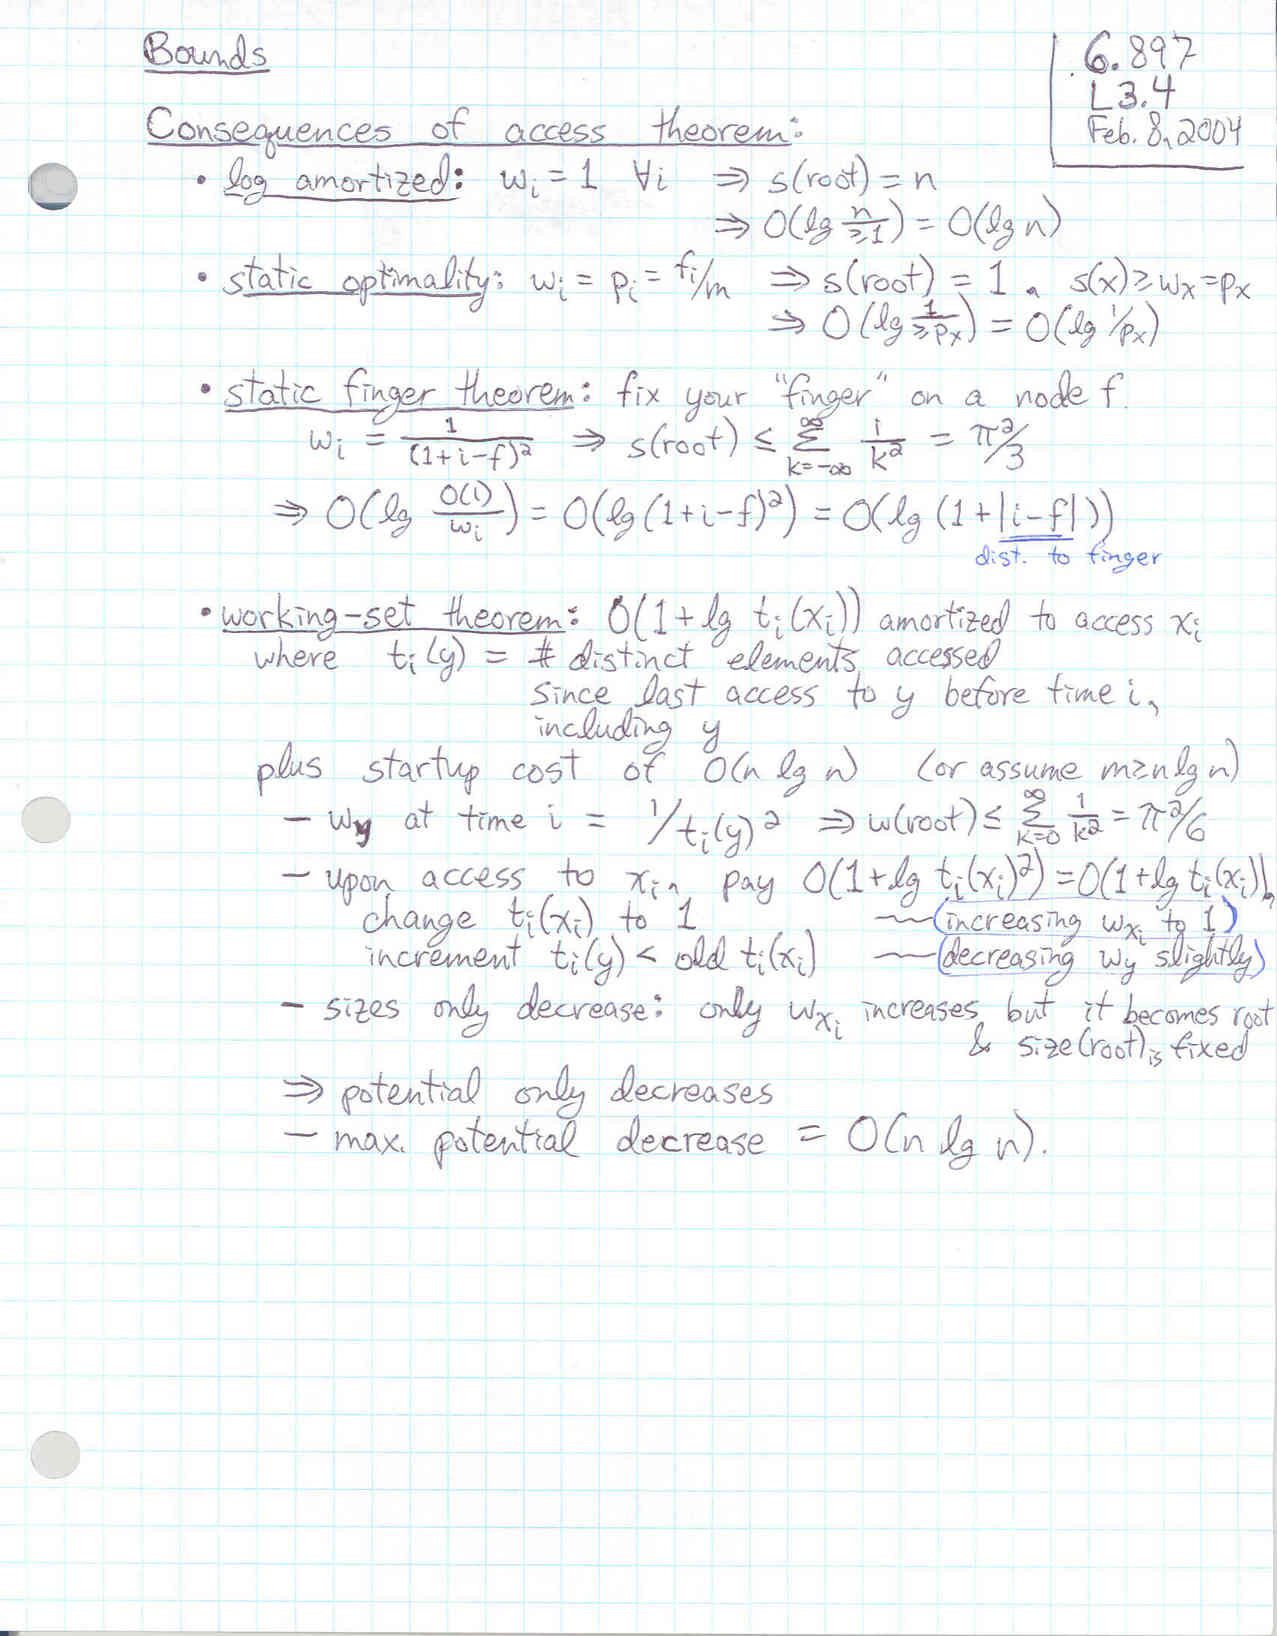 Bounds
6.897
L3.4
Feb. 8, 2004
Consequences of access theorem:
• log amortized: wᵢ = 1 ∀i ⇒ s(root) = n
⇒ O(lg n/≥1) = O(lg n)
• static optimality: wᵢ = pᵢ = fᵢ/m ⇒ s(root) = 1, s(x) ≥ wₓ = pₓ
⇒ O(lg 1/≥pₓ) = O(lg 1/pₓ)
• static finger theorem: fix your "finger" on a node f.
wᵢ = 1/(1+i−f)² ⇒ s(root) ≤ ∑_{k=−∞}^{∞} 1/k² = π²/3
⇒ O(lg O(1)/wᵢ) = O(lg (1+i−f)²) = O(lg (1+|i−f|))
dist. to finger
• working-set theorem: O(1+lg tᵢ(xᵢ)) amortized to access xᵢ
where tᵢ(y) = # distinct elements accessed
since last access to y before time i,
including y
plus startup cost of O(n lg n) (or assume m≥n lg n)
– w_y at time i = 1/tᵢ(y)² ⇒ w(root) ≤ ∑_{k=0}^{∞} 1/k² = π²/6
– upon access to xᵢ, pay O(1+lg tᵢ(xᵢ)²) = O(1+lg tᵢ(xᵢ)),
change tᵢ(xᵢ) to 1 ~~(increasing w_{xᵢ} to 1)
increment tᵢ(y) < old tᵢ(xᵢ) ~~(decreasing w_y slightly)
– sizes only decrease: only w_{xᵢ} increases, but it becomes root
& size(root) is fixed
⇒ potential only decreases
– max. potential decrease = O(n lg n).